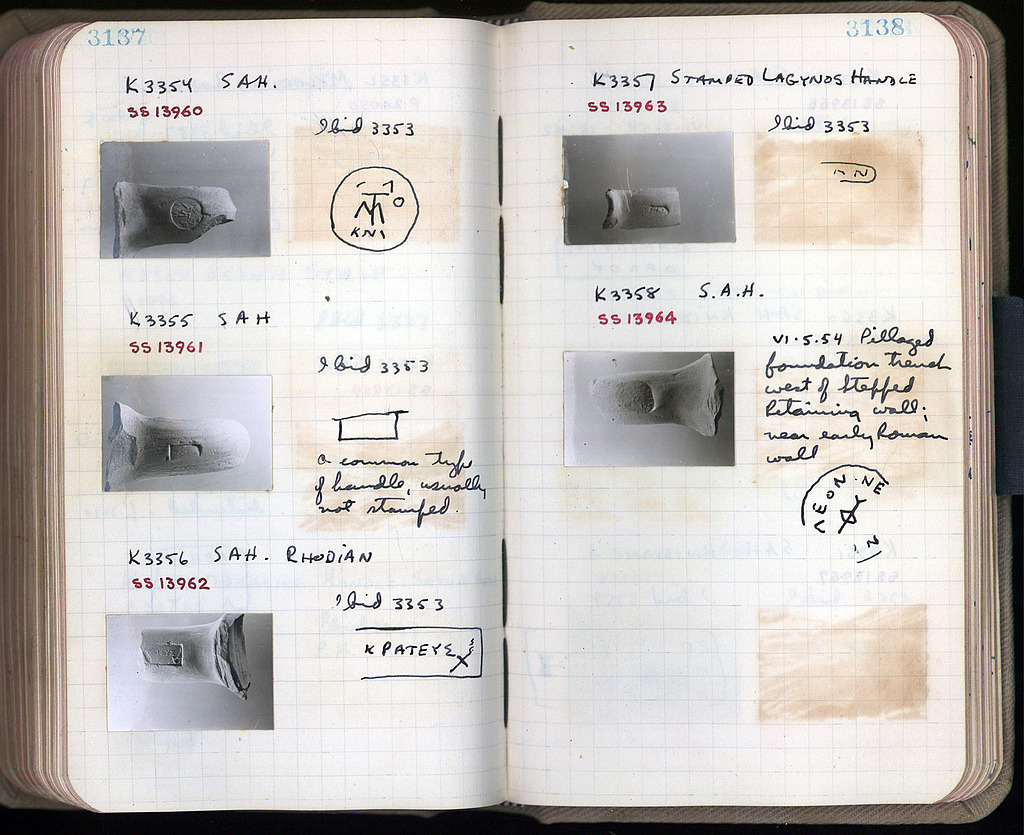 3137
K3354 SAH.
SS 13960
Ibid 3353
KNI
K3355 SAH
SS 13961
Ibid 3353
a common type
of handle, usually
not stamped.
K3356 SAH. RHODIAN
SS 13962
Ibid 3353
KPATEYΣ
3138
K3357 STAMPED LAGYNOS HANDLE
SS 13963
Ibid 3353
K3358 S.A.H.
SS 13964
VI.5.54 Pillaged
foundation trench
west of Stepped
Retaining wall;
near early Roman
wall
ΛEON NE
IN